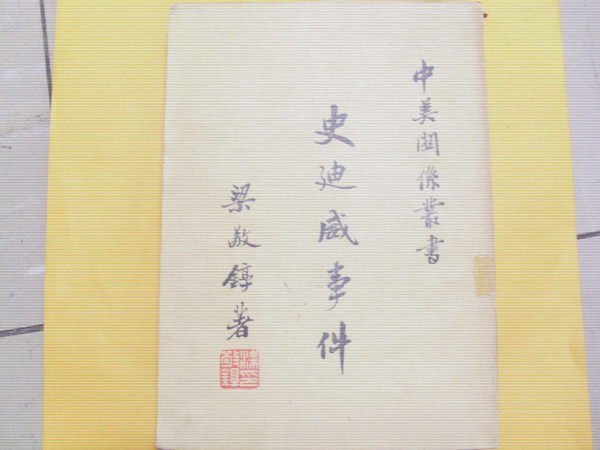 中美関係叢書
史迪威事件
梁敬錞著